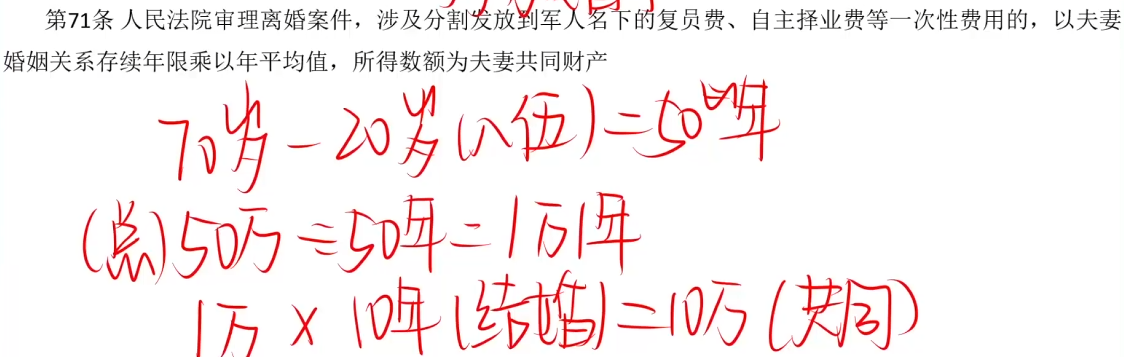 第71条 人民法院审理离婚案件，涉及分割发放到军人名下的复员费、自主择业费等一次性费用的，以夫妻
婚姻关系存续年限乘以年平均值，所得数额为夫妻共同财产
70岁-20岁(入伍)=50年
(总)50万÷50年=1万1年
1万×10年(结婚)=10万(共同)